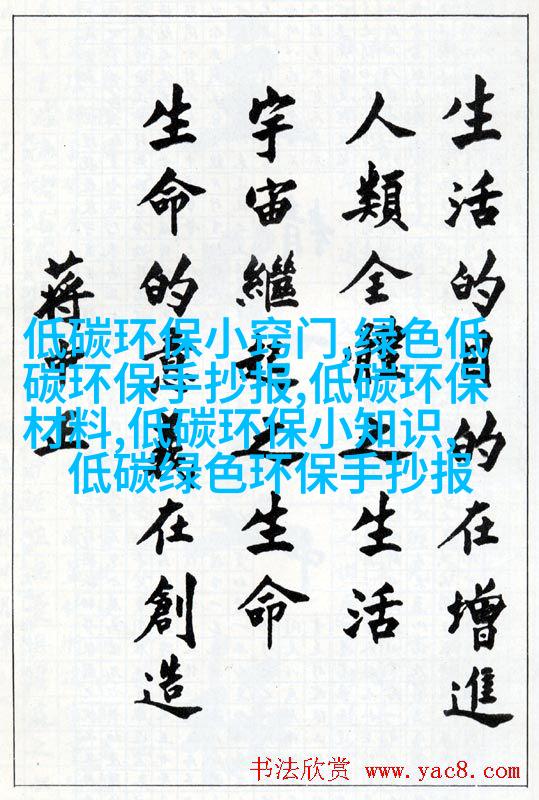 生活的目的在增進
人類全體之生活
宇宙繼起之生命
生命的意義在創造
蔣中正
低碳环保小窍门,绿色低
碳环保手抄报,低碳环保
材料,低碳环保小知识,
低碳绿色环保手抄报
书法欣赏 www.yac8.com